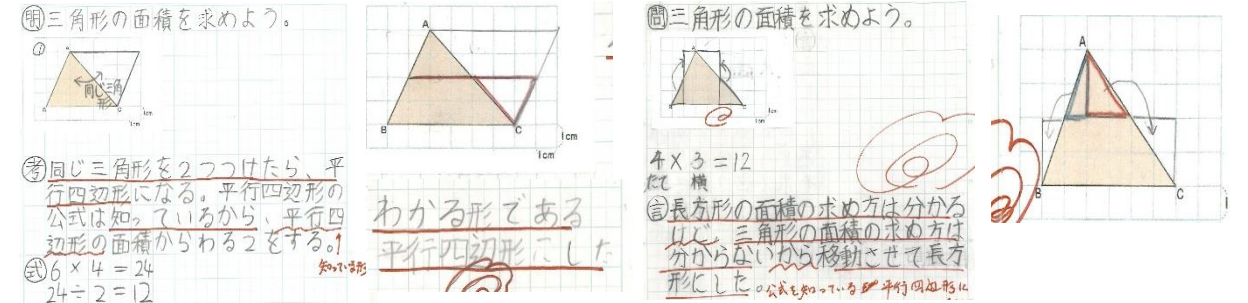 問三角形の面積を求めよう。
①
A
同じ三角形
B
C
1cm
1cm
考同じ三角形を2つつけたら、平
行四辺形になる。平行四辺形の
公式は知っているから、平行四
辺形の面積からわる2をする。
知っている形
式6×4=24
24÷2=12
A
B
C
1cm
1cm
わかる形である
平行四辺形にした
問三角形の面積を求めよう。
A
B
C
1cm
1cm
4×3=12
たて 横
言長方形の面積の求め方は分かる
けど、三角形の面積の求め方は
分からないから移動させて長方
形にした。公式を知っている 平行四辺形に
A
B
C
1